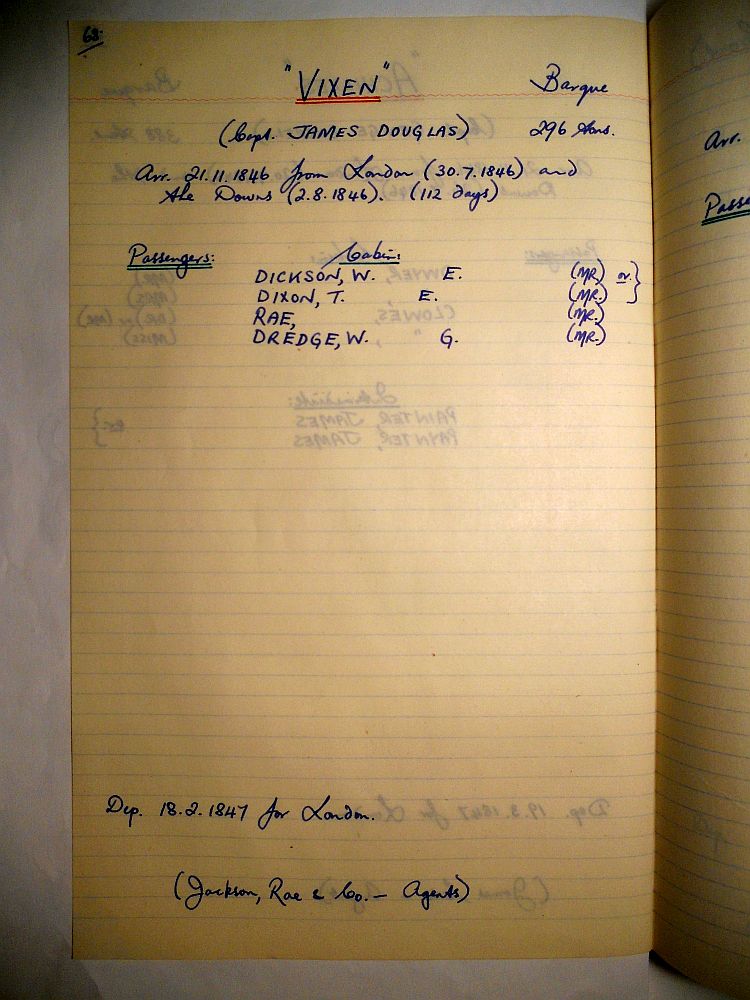 68.
"VIXEN" Barque
(Capt. JAMES DOUGLAS) 296 tons.
Arr. 21.11.1846 from London (30.7.1846) and
the Downs (2.8.1846). (112 days)
Passengers: Cabin:
DICKSON, W. E. (MR) or
DIXON, T. E. (MR.)
RAE, (MR.)
DREDGE, W. G. (MR.)
Dep. 18.2.1847 for London.
(Jackson, Rae & Co. — Agents)
Arr.
Passe